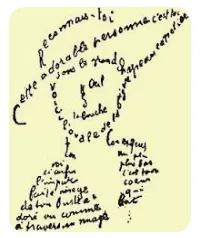 Reconnais-toi
Cette adorable personne c'est toi
sous le grand chapeau canotier
Œil
la bouche
Voici l'ovale de ta figure
Ton
cou exquis
voi
ci enfin
l'impar
faite image
de ton buste a
doré vu comme
à travers un nuage
un peu
plus bas
c'est ton
cœur
qui
bat